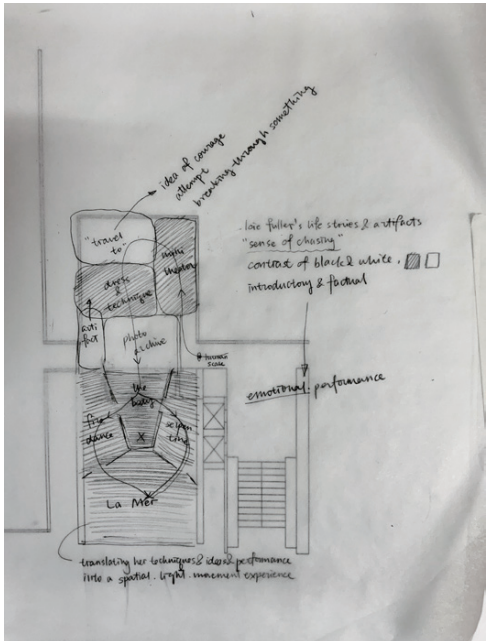 idea of courage
attempt
breaking through something
"travel
to"
mini
theatre
dress
&
technique
arti
fact
photo
archive
human
scale
loie fuller's life stories & artifacts
"sense of chasing"
contrast of black & white.
introductory & factual
emotional. performance
the
body
final
dance
X
La Mer
translating her techniques & ideas & performance
into a spatial. light. movement experience